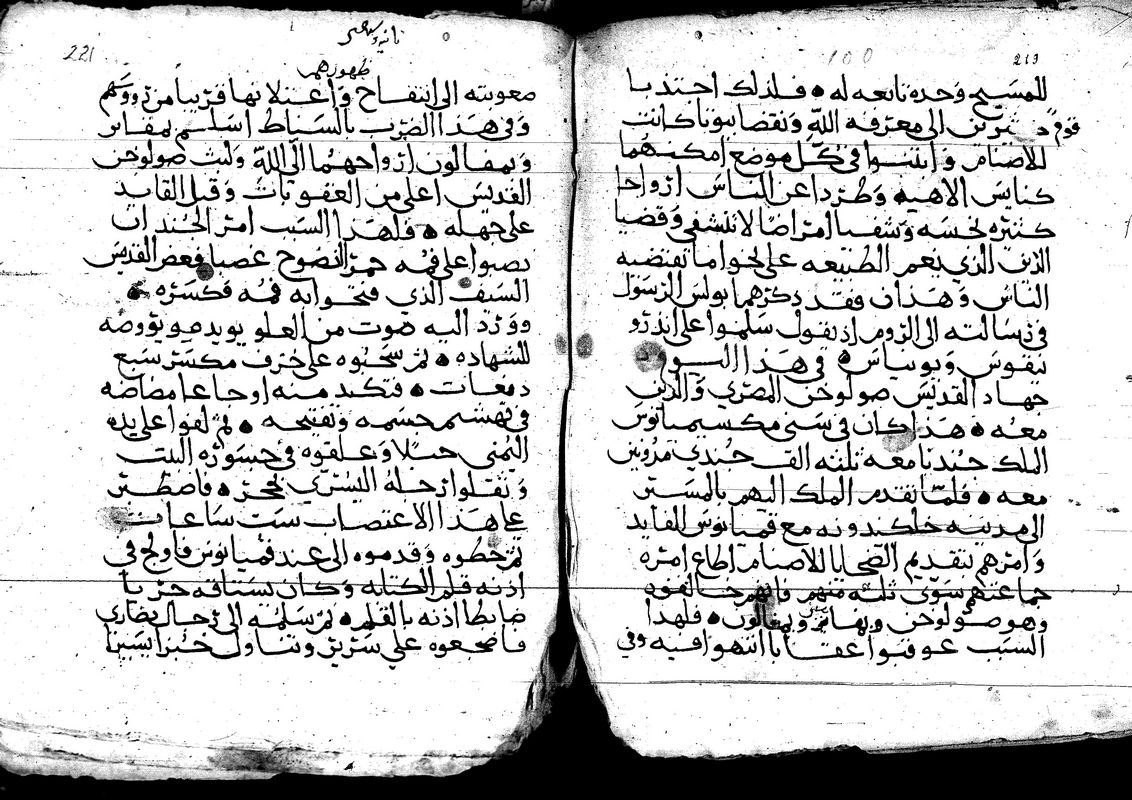 219
100
للمسيح وحده تابعه له ۞ فلذلك اجتذبا
قوم كثيرين الى معرفه الله ونقضا بيوتا كانت
للاصنام وابتنوا في كل موضع امكنهما
كنايس الاهيه وطردا عن الناس ارواحا
كثيره نجسه وشفيا امراضا لا تشفى وقضيا
الدين الذي يعم الطبيعه على نحو ما تقتضيه
الناس وهذان فقد ذكرهما بولس الرسول
في رسالته الى الروم اذ يقول سلموا على اندرو
نيقوس ويونياس ۞ في هذا اليوم
جهاد القديس صولوخن المصري والذين
معه ۞ هذا كان في سني مكسيميانوس
الملك جنديا معه ثلثه الف جندي مزونين
معه ۞ فلما تقدم الملك اليهم بالمسير
الى مدينه خلكدونه مع قميانوس القايد
وامرهم بتقديم الضحايا للاصنام اطاع امره
جماعتهم سوى ثلثه منهم فانهم خالفوه
وهو صولوخن وبمفامير وبمفالون ۞ فلهذا
السبب عوقبوا عقابا انتهوا فيه وفي
221
ثانيه وسبعين
ظهورهم
معونته الى انتفاخ واعتلانها قريبا من زوومهم
وفي هذا الضرب بالسياط اسلم بمفامير
وبمفالون ارواحهما الى الله ولبث صولوخن
القديس اعلى من العقوبات وقبل القايد
على جهله ۞ فلهذا السبب امر الجند ان
يصبوا على فمه خمر النضوح غصبا فعض القديس
السيف الذي فتحوا به فمه فكسره ۞
وورد اليه صوت من العلو يويده ويووصه
للشهاده ۞ ثم سحبوه على خزف مكسر سبع
دفعات ۞ فتكبد منه اوجاعا مضاضه
في تهشم جسمه وتفتيحه ۞ ثم لفوا على يده
اليمنى حبلا وعلقوه في جسوره البيت
وثقلوا رجله اليسرى بحجر ۞ فاصطبر
على هذا الاعتصاب ست ساعات
ثم حطوه وقدموه الى عند قميانوس فاولج في
اذنه قلم الكتابه وكان يستاقه جريا
ضابطا اذنه بالقلم ۞ ثم سلمه الى رجال نصارى
فاضجعوه على سرير وتناول خبزا يسيرا